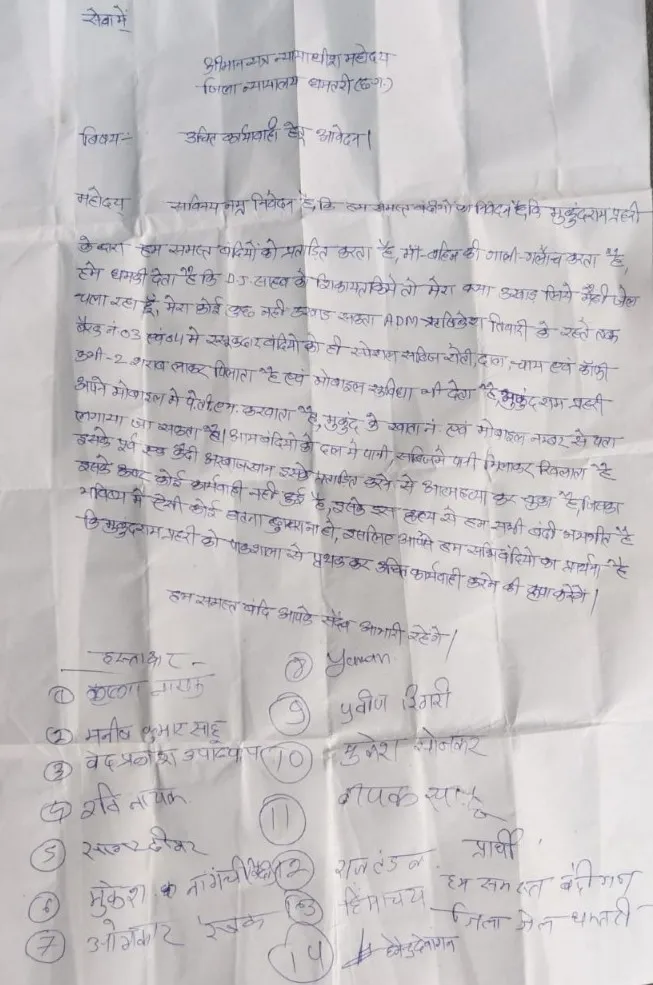 सेवा में
श्रीमान सत्र न्यायाधीश महोदय
जिला न्यायालय धमतरी (छ.ग.)
विषय:- उचित कार्यवाही हेतु आवेदन।
महोदय सविनय नम्र निवेदन है, कि हम समस्त बंदियों का निवेदन है कि मुकुंदराम प्रहरी
के द्वारा हम समस्त बंदियों को प्रताडित करता है, माँ-बहिन की गाली-गलौच करता है,
हमे धमकी देता है कि D.J. साहब के शिकायत किये तो मेरा क्या उखाड़ लिये मैं ही जेल
चला रहा हूँ, मेरा कोई कुछ नही उखाड़ सकता ADM तिवारी के रहते तक
बैरक नं 03 एवं 04 मे बंदियों को ही स्पेशल सब्जि रोटी, दाल, चाय एवं कॉफी
कभी-2 शराब लाकर पिलाता है एवं मोबाइल सुविधा भी देता है, मुकुंदराम प्रहरी
अपने मोबाइल मे करवाता है, मुकुंद के खाता नं एवं मोबाइल नम्बर से पता
लगाया जा सकता है। आम बंदियों के दाल मे पानी, सब्जि मे पानी मिलाकर खिलाता है
इसके पूर्व एक कैदी इसके प्रताडित करने से आत्महत्या कर चुका है, जिसका
इसके ऊपर कोई कार्यवाही नही हुई है, इसके इस से हम सभी बंदी भयभीत है
भविष्य मे ऐसी कोई घटना दुबारा ना हो, इसलिए आपसे हम सभि बंदियों का प्रार्थना है
कि मुकुंदराम प्रहरी को पाकशाला से पृथक कर उचित कार्यवाही करने की कृपा करेंगे।
हम समस्त बंदि आपके सदैव आभारी रहेंगे।
हस्ताक्षर
① कृष्णा
② मनीष कुमार साहू
③ वेद प्रकाश उपाध्याय
④ रवि नायक
⑤
⑥ मुकेश
⑦ ओमकार रजक
⑧ Yaman
⑨ प्रवीण
⑩ मुकेश सोनकर
⑪ दीपक साहू
⑫ राज टंडन
⑬ हिमाचय
⑭
प्रार्थी
हम समस्त बंदीगण
जिला जेल धमतरी